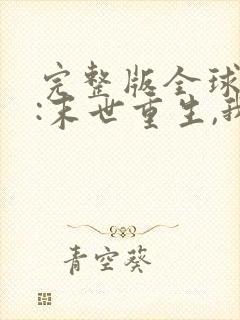 完整版全球
:末世重生,我
青空葵